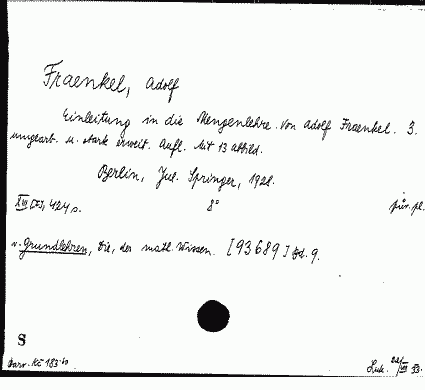 Fraenkel, Adolf
Einleitung in die Mengenlehre. Von Adolf Fraenkel. 3.
umgearb. u. stark erweit. Aufl. Mit 13 Abbild.
Berlin, Jul. Springer, 1928.
XIII 424 s. 8°
v. Grundlehren, Die, der math. Wissen. [93689] Bd. 9.
S